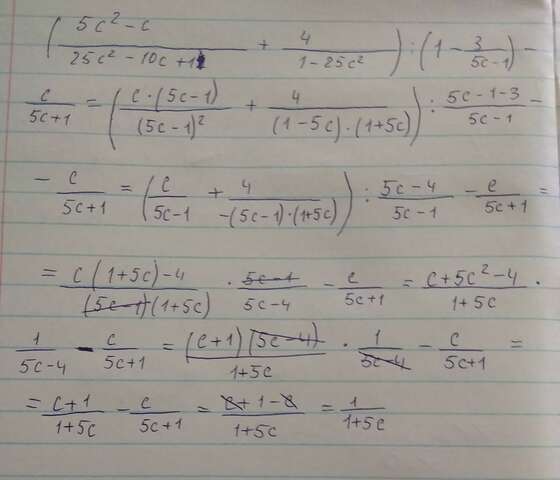 ( (5c² - c)/(25c² - 10c + 1) + 4/(1 - 25c²) ) : (1 - 3/(5c-1)) -
c/(5c+1) = ( c·(5c-1)/(5c-1)² + 4/((1-5c)·(1+5c)) ) : (5c-1-3)/(5c-1) -
- c/(5c+1) = ( c/(5c-1) + 4/(-(5c-1)·(1+5c)) ) : (5c-4)/(5c-1) - c/(5c+1) =
= (c(1+5c)-4)/((5c-1)(1+5c)) · (5c-1)/(5c-4) - c/(5c+1) = (c+5c²-4)/(1+5c) ·
1/(5c-4) - c/(5c+1) = ((c+1)(5c-4))/(1+5c) · 1/(5c-4) - c/(5c+1) =
= (c+1)/(1+5c) - c/(5c+1) = (c+1-c)/(1+5c) = 1/(1+5c)